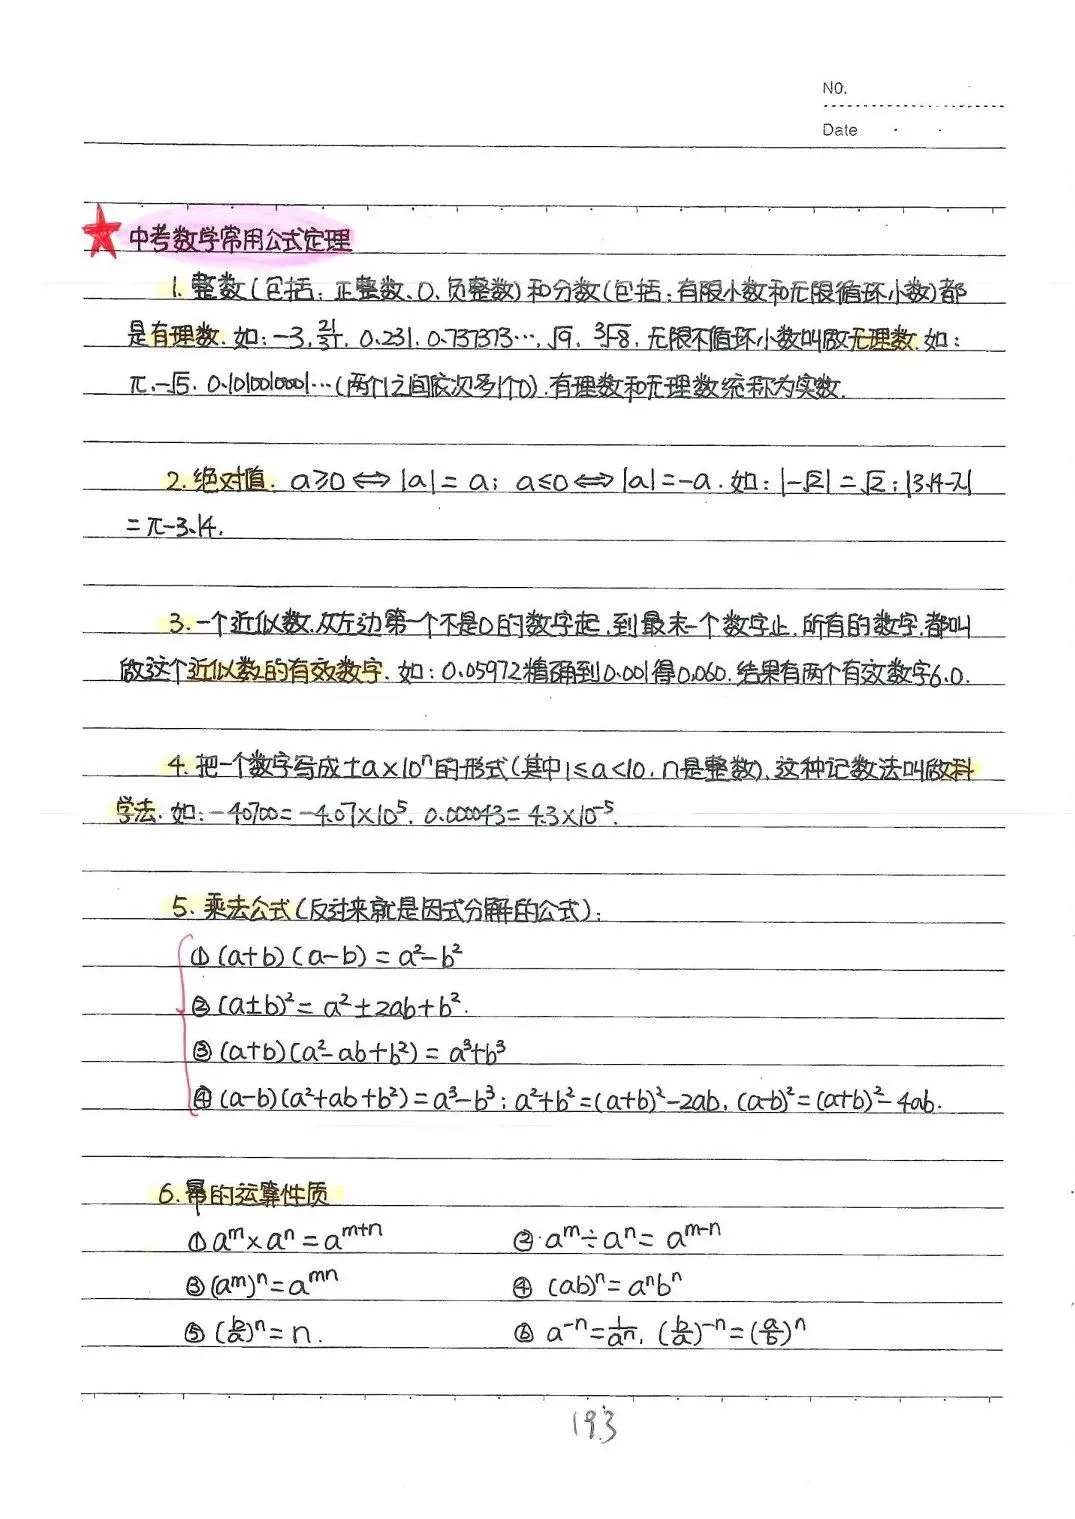 NO.
Date
中考数学常用公式定理
1. 整数(包括:正整数、0、负整数)和分数(包括:有限小数和无限循环小数)都
是有理数.如:-3, , 0.231, 0.737373…, √9, ³√-8. 无限不循环小数叫做无理数.如:
π, -√5, 0.1010010001…(两个1之间依次多1个0).有理数和无理数统称为实数.
2. 绝对值. a≥0⟺|a|=a; a≤0⟺|a|=-a. 如:|-√2|=√2;|3.14-π|
=π-3.14.
3. 一个近似数,从左边第一个不是0的数字起,到最末一个数字止,所有的数字,都叫
做这个近似数的有效数字. 如:0.05972精确到0.001得0.060.结果有两个有效数字6.0.
4. 把一个数字写成±a×10ⁿ的形式(其中1≤a<10, n是整数),这种记数法叫做科
学法. 如:-40700=-4.07×10⁵, 0.000043=4.3×10⁻⁵.
5. 乘法公式(反过来就是因式分解的公式):
① (a+b)(a-b)=a²-b²
② (a±b)²=a²±2ab+b².
③ (a+b)(a²-ab+b²)=a³+b³
④ (a-b)(a²+ab+b²)=a³-b³; a²+b²=(a+b)²-2ab, (a-b)²=(a+b)²-4ab.
6. 幂的运算性质
① aᵐ×aⁿ=aᵐ⁺ⁿ ② aᵐ÷aⁿ=aᵐ⁻ⁿ
③ (aᵐ)ⁿ=aᵐⁿ ④ (ab)ⁿ=aⁿbⁿ
⑤ (b/a)ⁿ=n. ⑥ a⁻ⁿ=1/aⁿ, (b/a)⁻ⁿ=(a/b)ⁿ
193